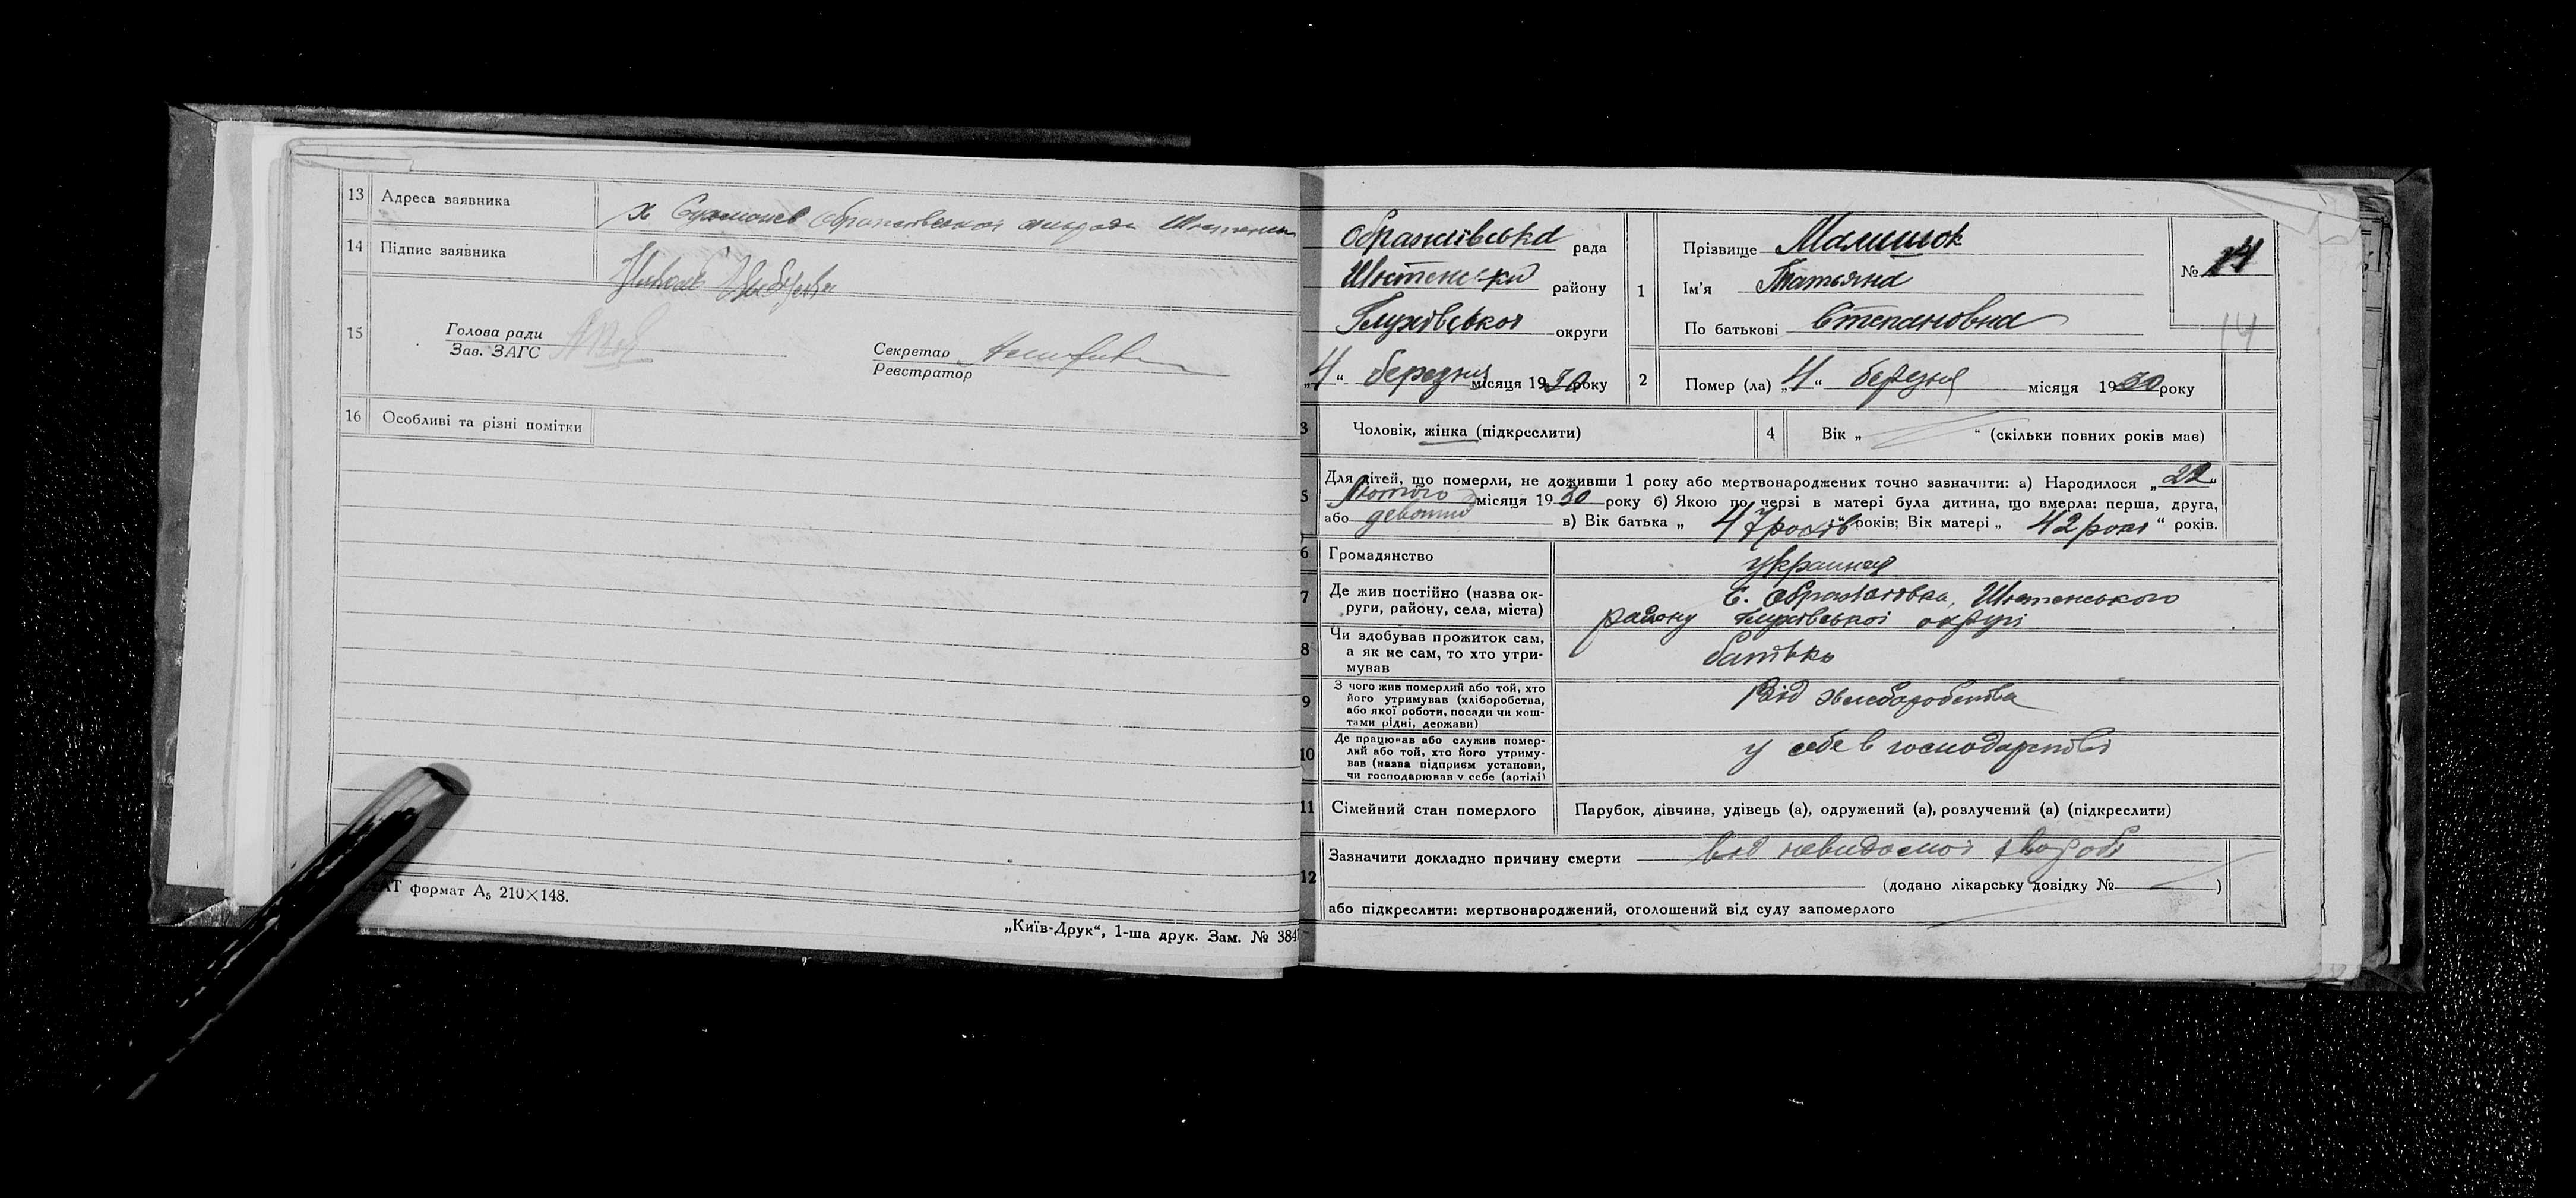 13 Адреса заявника х
14 Підпис заявника
15 Голова ради
Зав. ЗАГС
Секретар
Реєстратор
16 Особливі та різні помітки
АТ формат А5 210×148.
„Київ-Друк“, 1-ша друк. Зам. № 384
Ображіївська рада
району
Глухівської округи
„4“ березня місяця 1930 року
1 Прізвище Малишок
Ім'я Татьяна
По батькові Степановна
№ 14
14
2 Помер (ла) „4“ березня місяця 1930 року
3 Чоловік, жінка (підкреслити)
4 Вік „ “ (скільки повних років має)
5 Для дітей, що померли, не доживши 1 року або мертвонароджених точно зазначити: а) Народилося „22“
Лютого місяця 1930 року б) Якою по черзі в матері була дитина, що вмерла: перша, друга,
або в) Вік батька „47 років“ років; Вік матері „42 роки“ років.
6 Громадянство
7 Де жив постійно (назва ок-
руги, району, села, міста)
С. Ображіовка, Шостенського
району Глухівської округі
8 Чи здобував прожиток сам,
а як не сам, то хто утри-
мував
батько
9 З чого жив померлий або той, хто
його утримував (хліборобства,
або якої роботи, посади чи кош-
тами рідні, держави)
Від хлеборобства
10 Де працював або служив помер-
лий або той, хто його утриму-
вав (назва підприєм установи,
чи господарював у себе (артілі)
у себе в господарстві
11 Сімейний стан померлого
Парубок, дівчина, удівець (а), одружений (а), розлучений (а) (підкреслити)
12 Зазначити докладно причину смерти від невидомої хвороби
(додано лікарську довідку № )
або підкреслити: мертвонароджений, оголошений від суду запомерлого